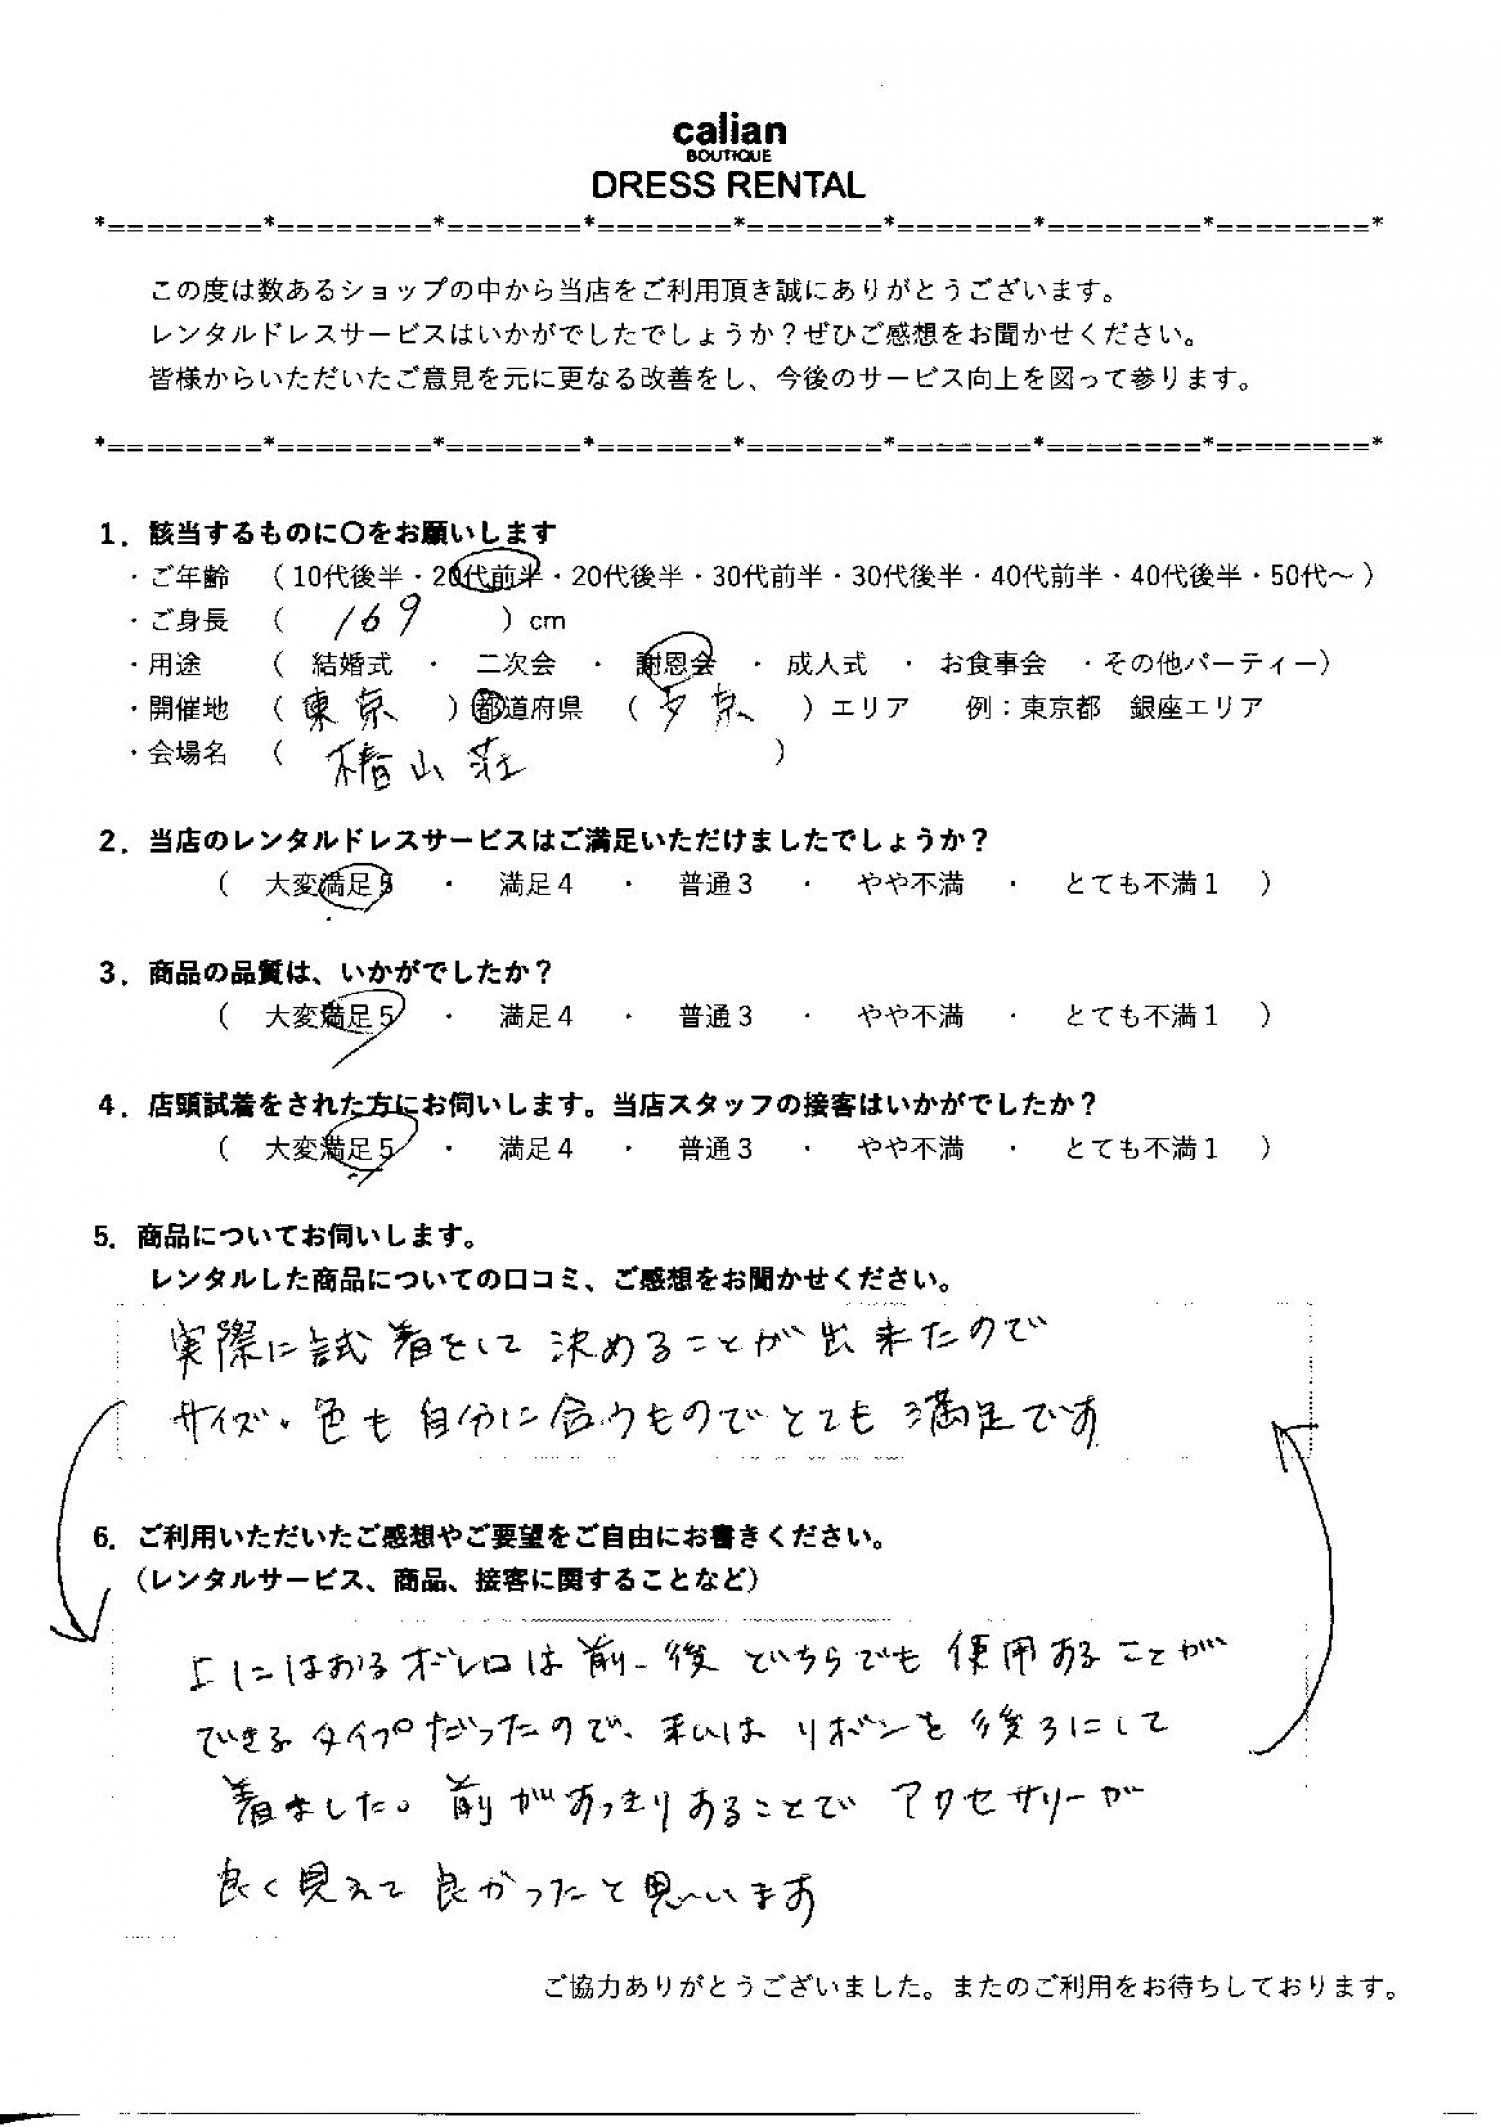 calian
BOUTIQUE
DRESS RENTAL
*========*========*=======*=======*=======*=======*========*========*
この度は数あるショップの中から当店をご利用頂き誠にありがとうございます。
レンタルドレスサービスはいかがでしたでしょうか？ぜひご感想をお聞かせください。
皆様からいただいたご意見を元に更なる改善をし、今後のサービス向上を図って参ります。
*========*========*=======*=======*=======*=======*========*========*
1．該当するものに〇をお願いします
・ご年齢 （10代後半・20代前半・20代後半・30代前半・30代後半・40代前半・40代後半・50代～）
・ご身長 （ 169 ）cm
・用途 （ 結婚式 ・ 二次会 ・ 謝恩会 ・ 成人式 ・ お食事会 ・その他パーティー）
・開催地 （ 東京 ）都道府県 （ 京 ）エリア 例：東京都 銀座エリア
・会場名 （ 椿山荘 ）
2．当店のレンタルドレスサービスはご満足いただけましたでしょうか？
（ 大変満足5 ・ 満足4 ・ 普通3 ・ やや不満 ・ とても不満1 ）
3．商品の品質は、いかがでしたか？
（ 大変満足5 ・ 満足4 ・ 普通3 ・ やや不満 ・ とても不満1 ）
4．店頭試着をされた方にお伺いします。当店スタッフの接客はいかがでしたか？
（ 大変満足5 ・ 満足4 ・ 普通3 ・ やや不満 ・ とても不満1 ）
5．商品についてお伺いします。
レンタルした商品についての口コミ、ご感想をお聞かせください。
実際に試着をして 決めることが出来たので
サイズ・色も自分に合うものでとても満足です
6．ご利用いただいたご感想やご要望をご自由にお書きください。
（レンタルサービス、商品、接客に関することなど）
上にはおるボレロは前・後 どちらでも 使用することが
できるタイプだったので、私は リボンを後ろにして
着ました。前がすっきりすることで アクセサリーが
良く見えて 良かったと思います
ご協力ありがとうございました。またのご利用をお待ちしております。